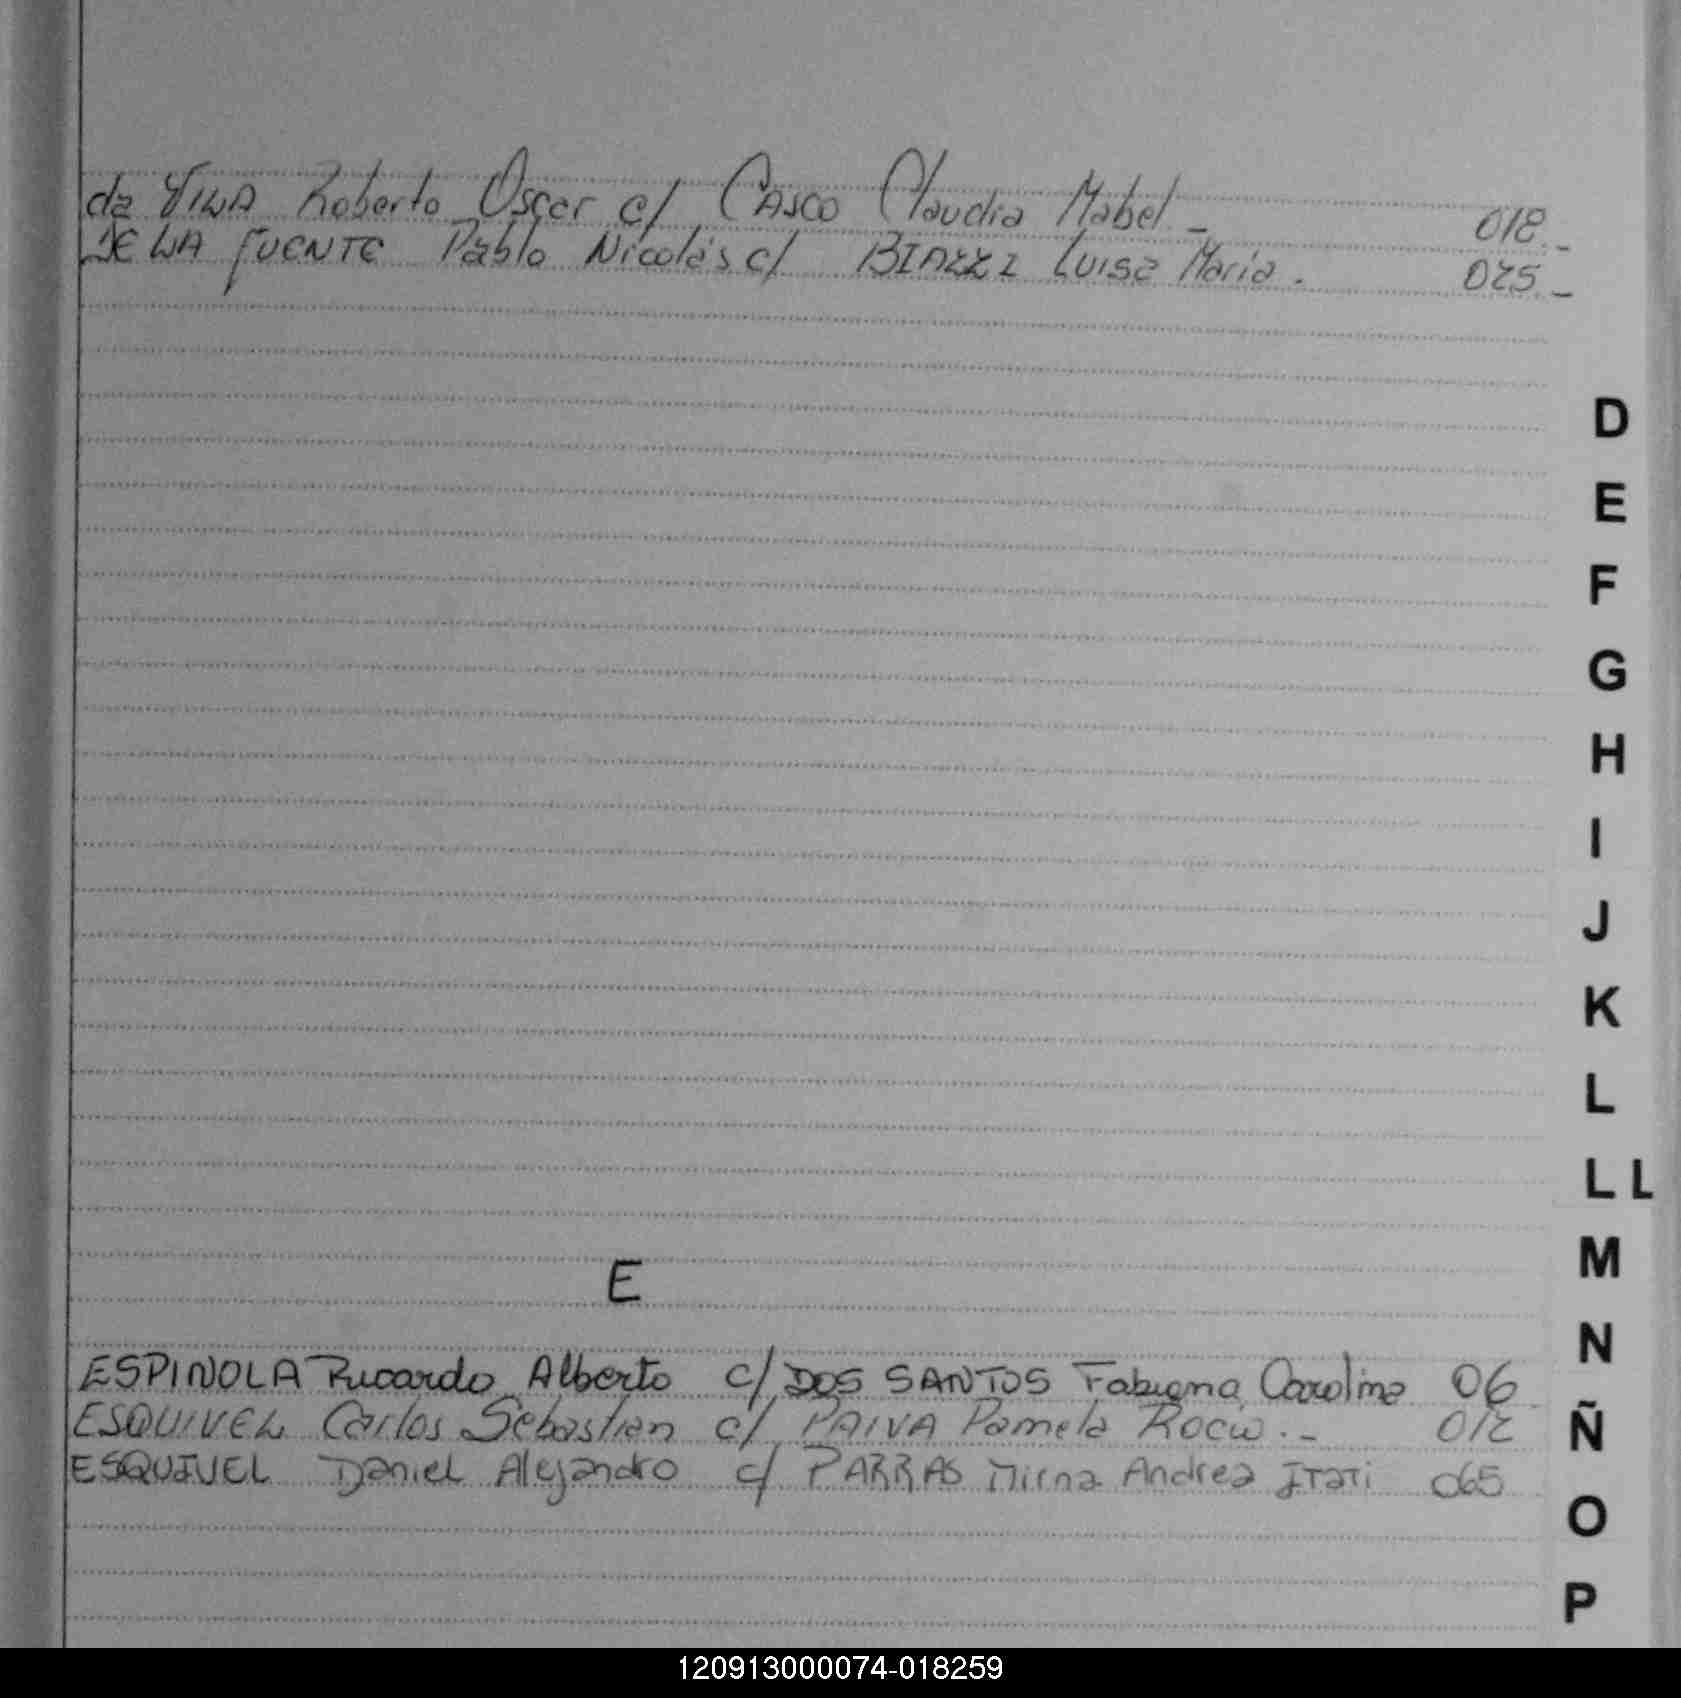 de VILA Roberto Oscar c/ CASCO Claudia Mabel._ 018._
DE LA FUENTE Pablo Nicolás c/ BIAZZI Luisa Maria. 025._
D
E
F
G
H
I
J
K
L
LL
M
E
N
ESPINOLA Ricardo Alberto c/ DOS SANTOS Fabiana Carolina 06
ESQUIVEL Carlos Sebastian c/ PAIVA Pamela Rocio._ 012
Ñ
ESQUIVEL Daniel Alejandro c/ PARRAS Mirna Andrea Itati 065
O
P
120913000074-018259